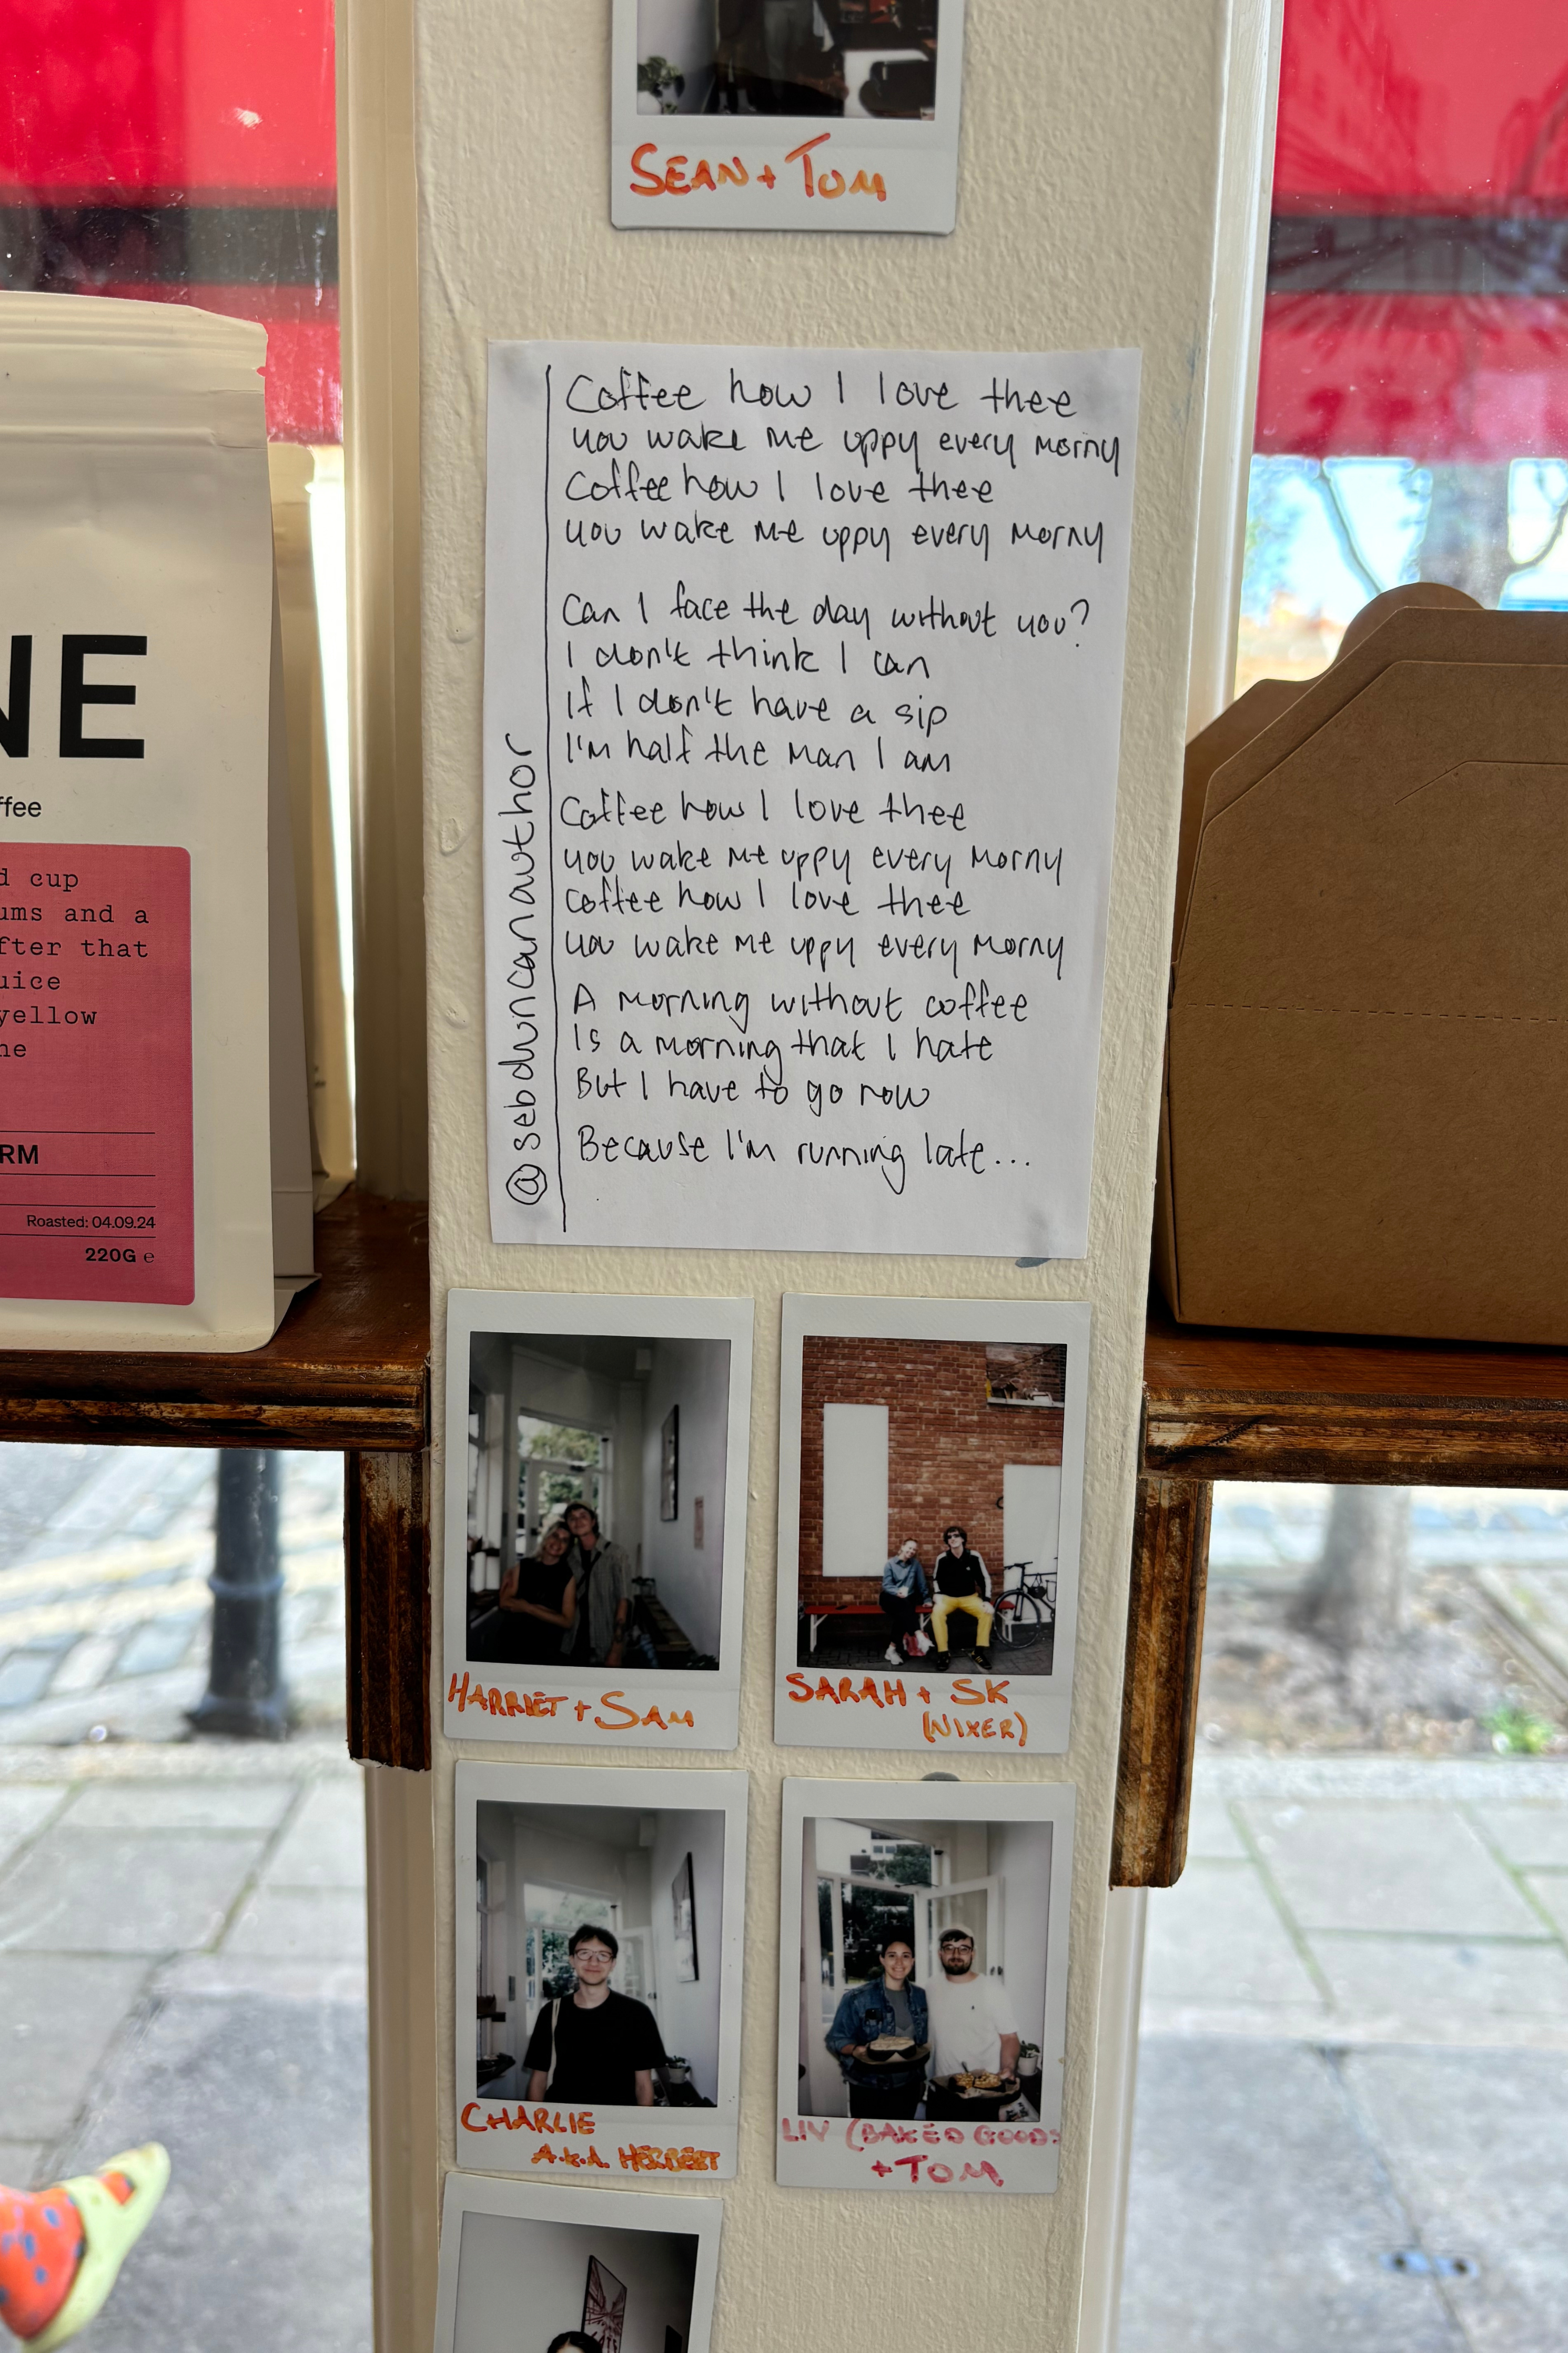 SEAN + TOM
Coffee how I love thee
you wake me uppy every morny
Coffee how I love thee
you wake me uppy every morny
Can I face the day without you?
I don't think I can
If I don't have a sip
I'm half the man I am
Coffee how I love thee
you wake me uppy every morny
Coffee how I love thee
you wake me uppy every morny
A morning without coffee
Is a morning that I hate
But I have to go now
Because I'm running late...
@sebduncanauthor
NE
ffee
d cup
ums and a
fter that
uice
yellow
ne
RM
Roasted: 04.09.24
220G e
HARRIET + SAM
SARAH + SK
(NIXER)
CHARLIE
A.K.A. HERBERT
LIV (BAKED GOODS
+ TOM